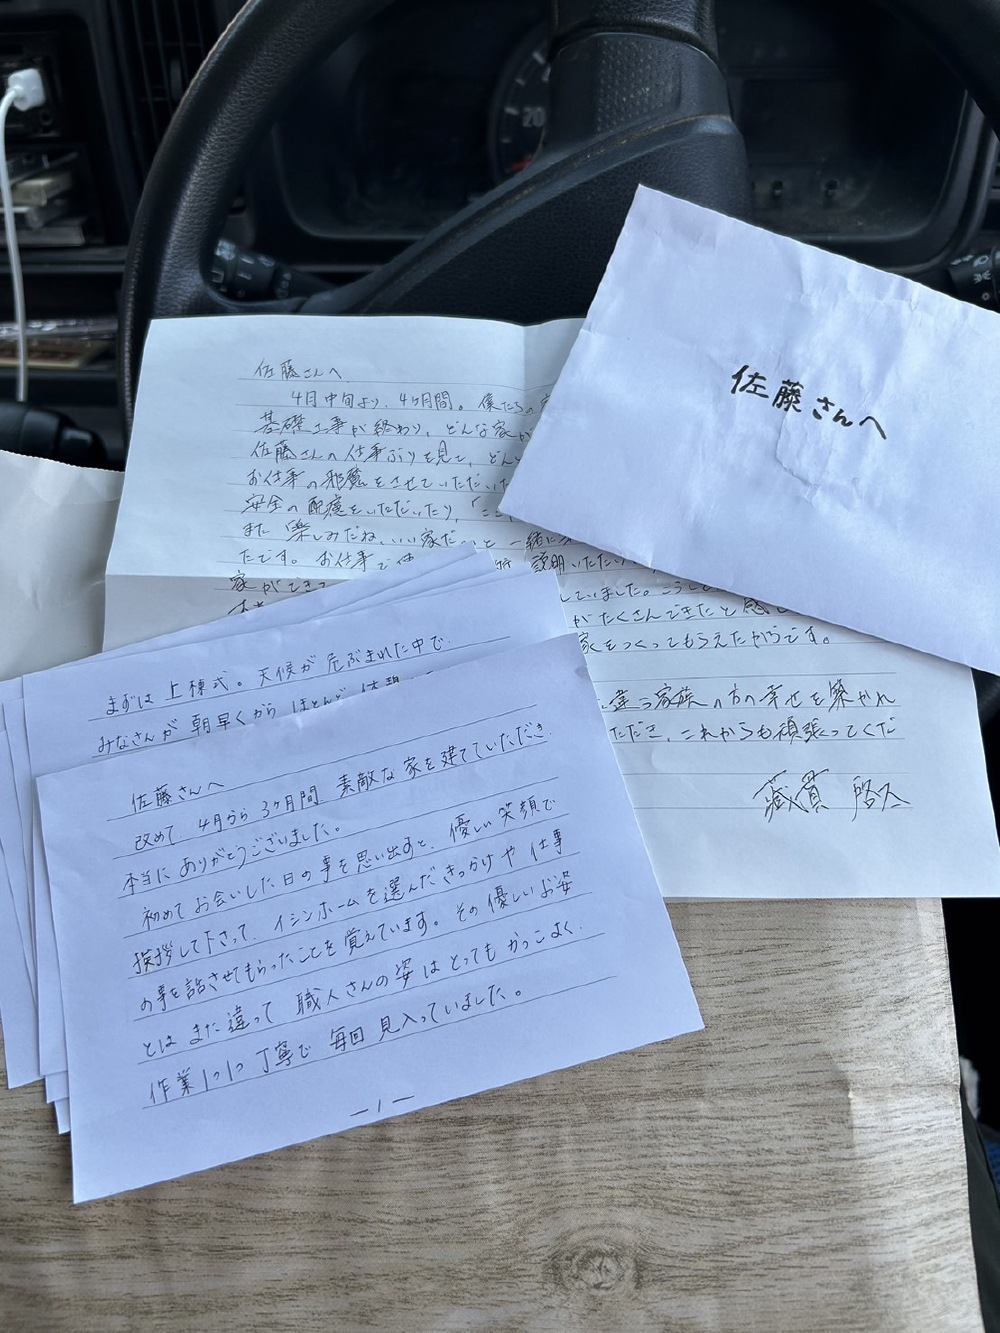 佐藤さんへ
佐藤さんへ
4月中旬より、4ヶ月間。僕たちの
基礎工事が終わり、どんな家が
佐藤さんの仕事ぶりを見て、どん
お仕事の邪魔をさせていただい
安全の配慮をいただいたり、「ここ
また楽しみだね、いい家だ と一緒に
たです。お仕事で 説明いただい
家ができ していました。こうし
がたくさんできたと感
家をつくってもらえたからです。
違う家族の方の幸せを築かれ
ただき、これからも頑張ってくだ
啓久
まずは上棟式。天候が危ぶまれた中で、
みなさんが朝早くからほとんど休憩
佐藤さんへ
改めて4月から3ヶ月間、素敵な家を建てていただき、
本当にありがとうございました。
初めてお会いした日の事を思い出すと、優しい笑顔で
挨拶して下さって、イシンホームを選んだきっかけや仕事
の事を話させてもらったことを覚えています。その優しいお姿
とはまた違って職人さんの姿はとってもかっこよく、
作業1つ1つ丁寧で毎回見入っていました。
-1-
20